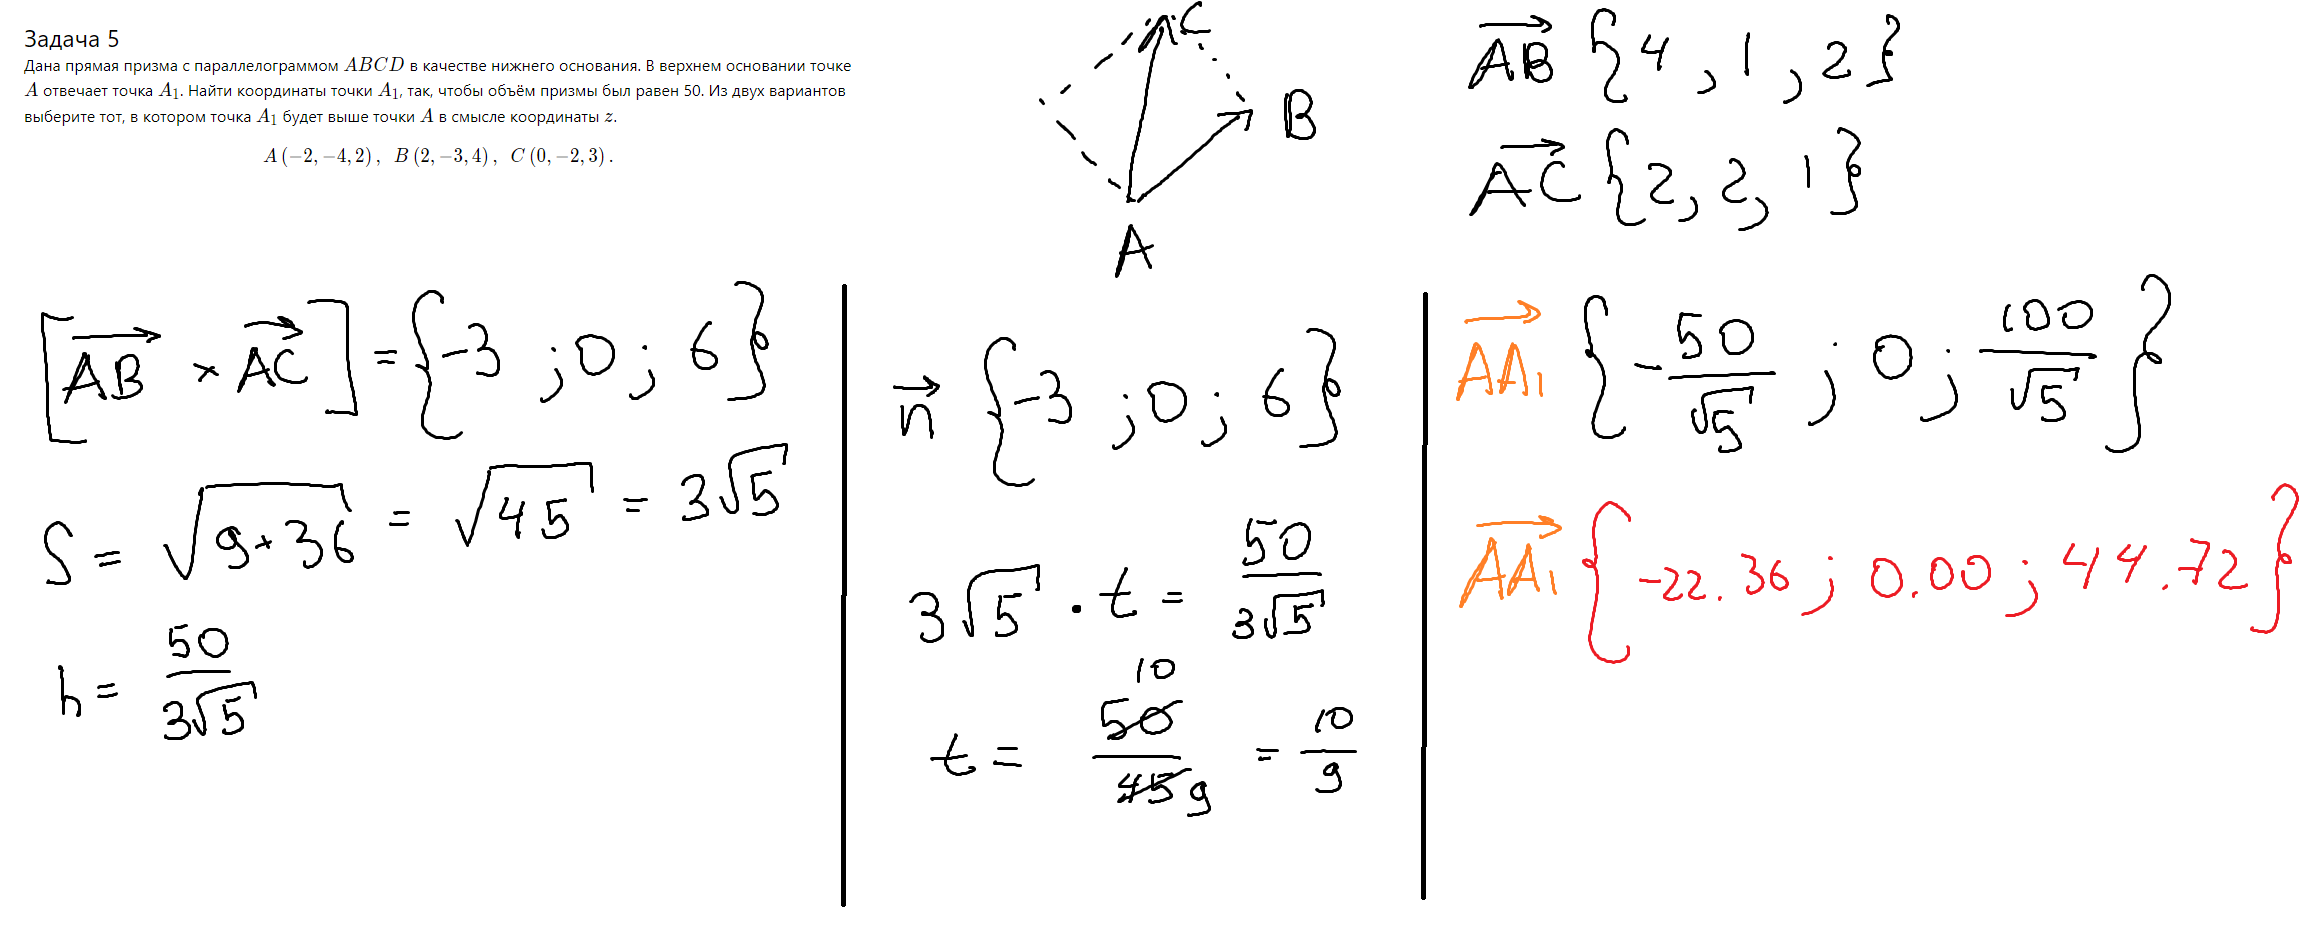 Задача 5
Дана прямая призма с параллелограммом ABCD в качестве нижнего основания. В верхнем основании точке
A отвечает точка A₁. Найти координаты точки A₁, так, чтобы объём призмы был равен 50. Из двух вариантов
выберите тот, в котором точка A₁ будет выше точки A в смысле координаты z.
A (−2, −4, 2) , B (2, −3, 4) , C (0, −2, 3) .
C
B
A
AB {4 , 1 , 2}
AC {2, 2, 1}
[AB × AC] = {-3 ; 0 ; 6}
S = √(9+36) = √45 = 3√5
h = 50/(3√5)
n {-3 ; 0 ; 6}
3√5 · t = 50/(3√5)
10
t = 50/45 9 = 10/9
AA₁ {-50/√5 ; 0 ; 100/√5}
AA₁ {-22.36 ; 0.00 ; 44.72}